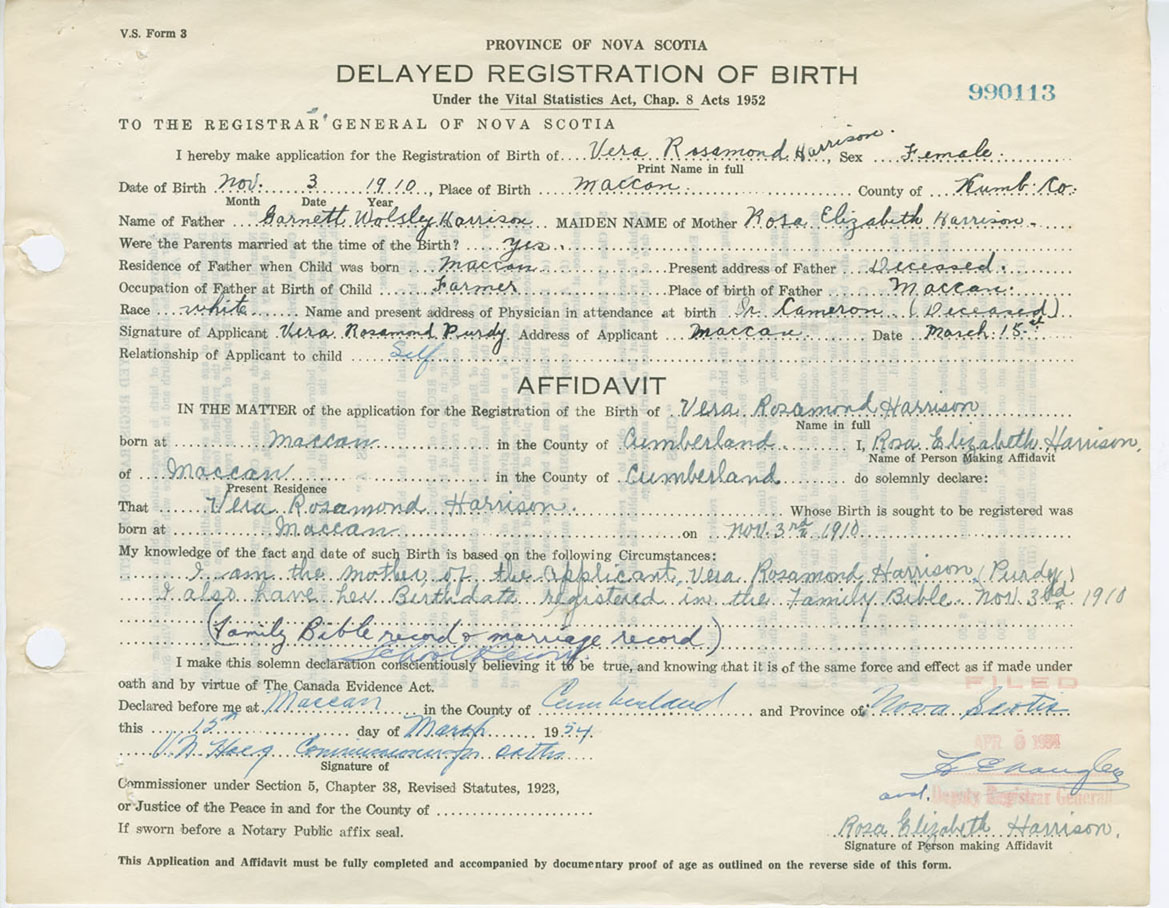 V.S. Form 3
PROVINCE OF NOVA SCOTIA
DELAYED REGISTRATION OF BIRTH
990113
Under the Vital Statistics Act, Chap. 8 Acts 1952
TO THE REGISTRAR GENERAL OF NOVA SCOTIA
I hereby make application for the Registration of Birth of Vera Rosamond Harrison, Sex Female.
Print Name in full
Date of Birth Nov. 3 1910, Place of Birth Maccan. County of Kumb. Co.
Month Date Year
Name of Father Garnett Wolsley Harrison MAIDEN NAME of Mother Rosa Elizabeth Harrison
Were the Parents married at the time of the Birth? yes.
Residence of Father when Child was born Maccan Present address of Father Deceased.
Occupation of Father at Birth of Child Farmer Place of birth of Father Maccan.
Race white Name and present address of Physician in attendance at birth Dr. Cameron (Deceased)
Signature of Applicant Vera Rosamond Purdy Address of Applicant Maccan Date March 15st
Relationship of Applicant to child Self
AFFIDAVIT
IN THE MATTER of the application for the Registration of the Birth of Vera Rosamond Harrison
Name in full
born at Maccan in the County of Cumberland I, Rosa Elizabeth Harrison,
Name of Person Making Affidavit
of Maccan in the County of Cumberland do solemnly declare:
Present Residence
That Vera Rosamond Harrison. Whose Birth is sought to be registered was
born at Maccan on Nov. 3rd 1910
My knowledge of the fact and date of such Birth is based on the following Circumstances:
I am the mother of the applicant, Vera Rosamond Harrison (Purdy)
I also have her Birthdate registered in the Family Bible. Nov. 3rd 1910
(Family Bible record & marriage record)
School Record
I make this solemn declaration conscientiously believing it to be true, and knowing that it is of the same force and effect as if made under
oath and by virtue of The Canada Evidence Act.
FILED
Declared before me at Maccan in the County of Cumberland and Province of Nova Scotia
this 15th day of March 1954
APR 6 1954
Commissioner for oaths
Signature of
Commissioner under Section 5, Chapter 38, Revised Statutes, 1923,
and. Deputy Registrar General
or Justice of the Peace in and for the County of
Rosa Elizabeth Harrison.
If sworn before a Notary Public affix seal.
Signature of Person making Affidavit
This Application and Affidavit must be fully completed and accompanied by documentary proof of age as outlined on the reverse side of this form.